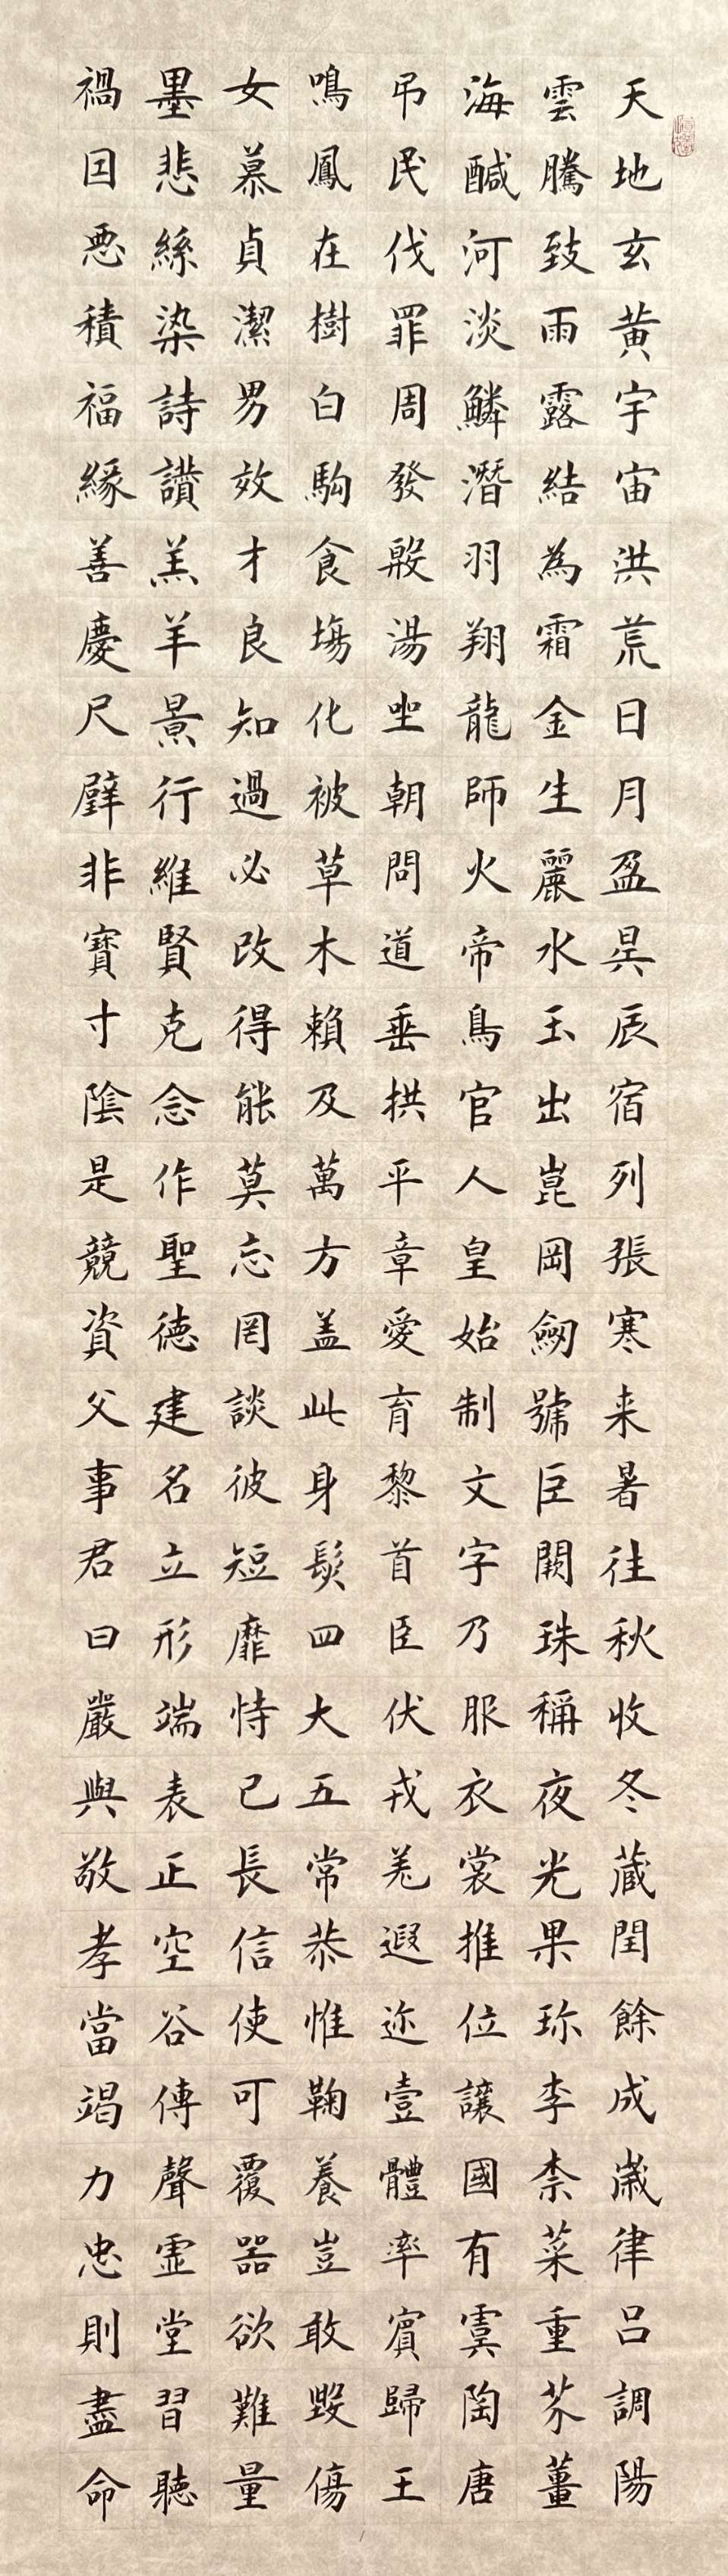 天地玄黃宇宙洪荒日月盈昃辰宿列張寒来暑往秋收冬蔵閏餘成嵗律呂調陽
雲騰致雨露結為霜金生麗水玉出崑岡劒號巨闕珠稱夜光果珎李柰菜重芥薑
海醎河淡鱗潛羽翔龍師火帝鳥官人皇始制文字乃服衣裳推位讓國有虞陶唐
弔民伐罪周發殷湯坐朝問道垂拱平章愛育黎首臣伏戎羌遐迩壹體率賓歸王
鳴鳳在樹白駒食場化被草木賴及萬方盖此身髮四大五常恭惟鞠養豈敢毀傷
女慕貞潔男效才良知過必改得能莫忘罔談彼短靡恃己長信使可覆器欲難量
墨悲絲染詩讃羔羊景行維賢克念作聖德建名立形端表正空谷傳聲虛堂習聽
禍因惡積福緣善慶尺璧非寶寸陰是競資父事君曰嚴與敬孝當竭力忠則盡命